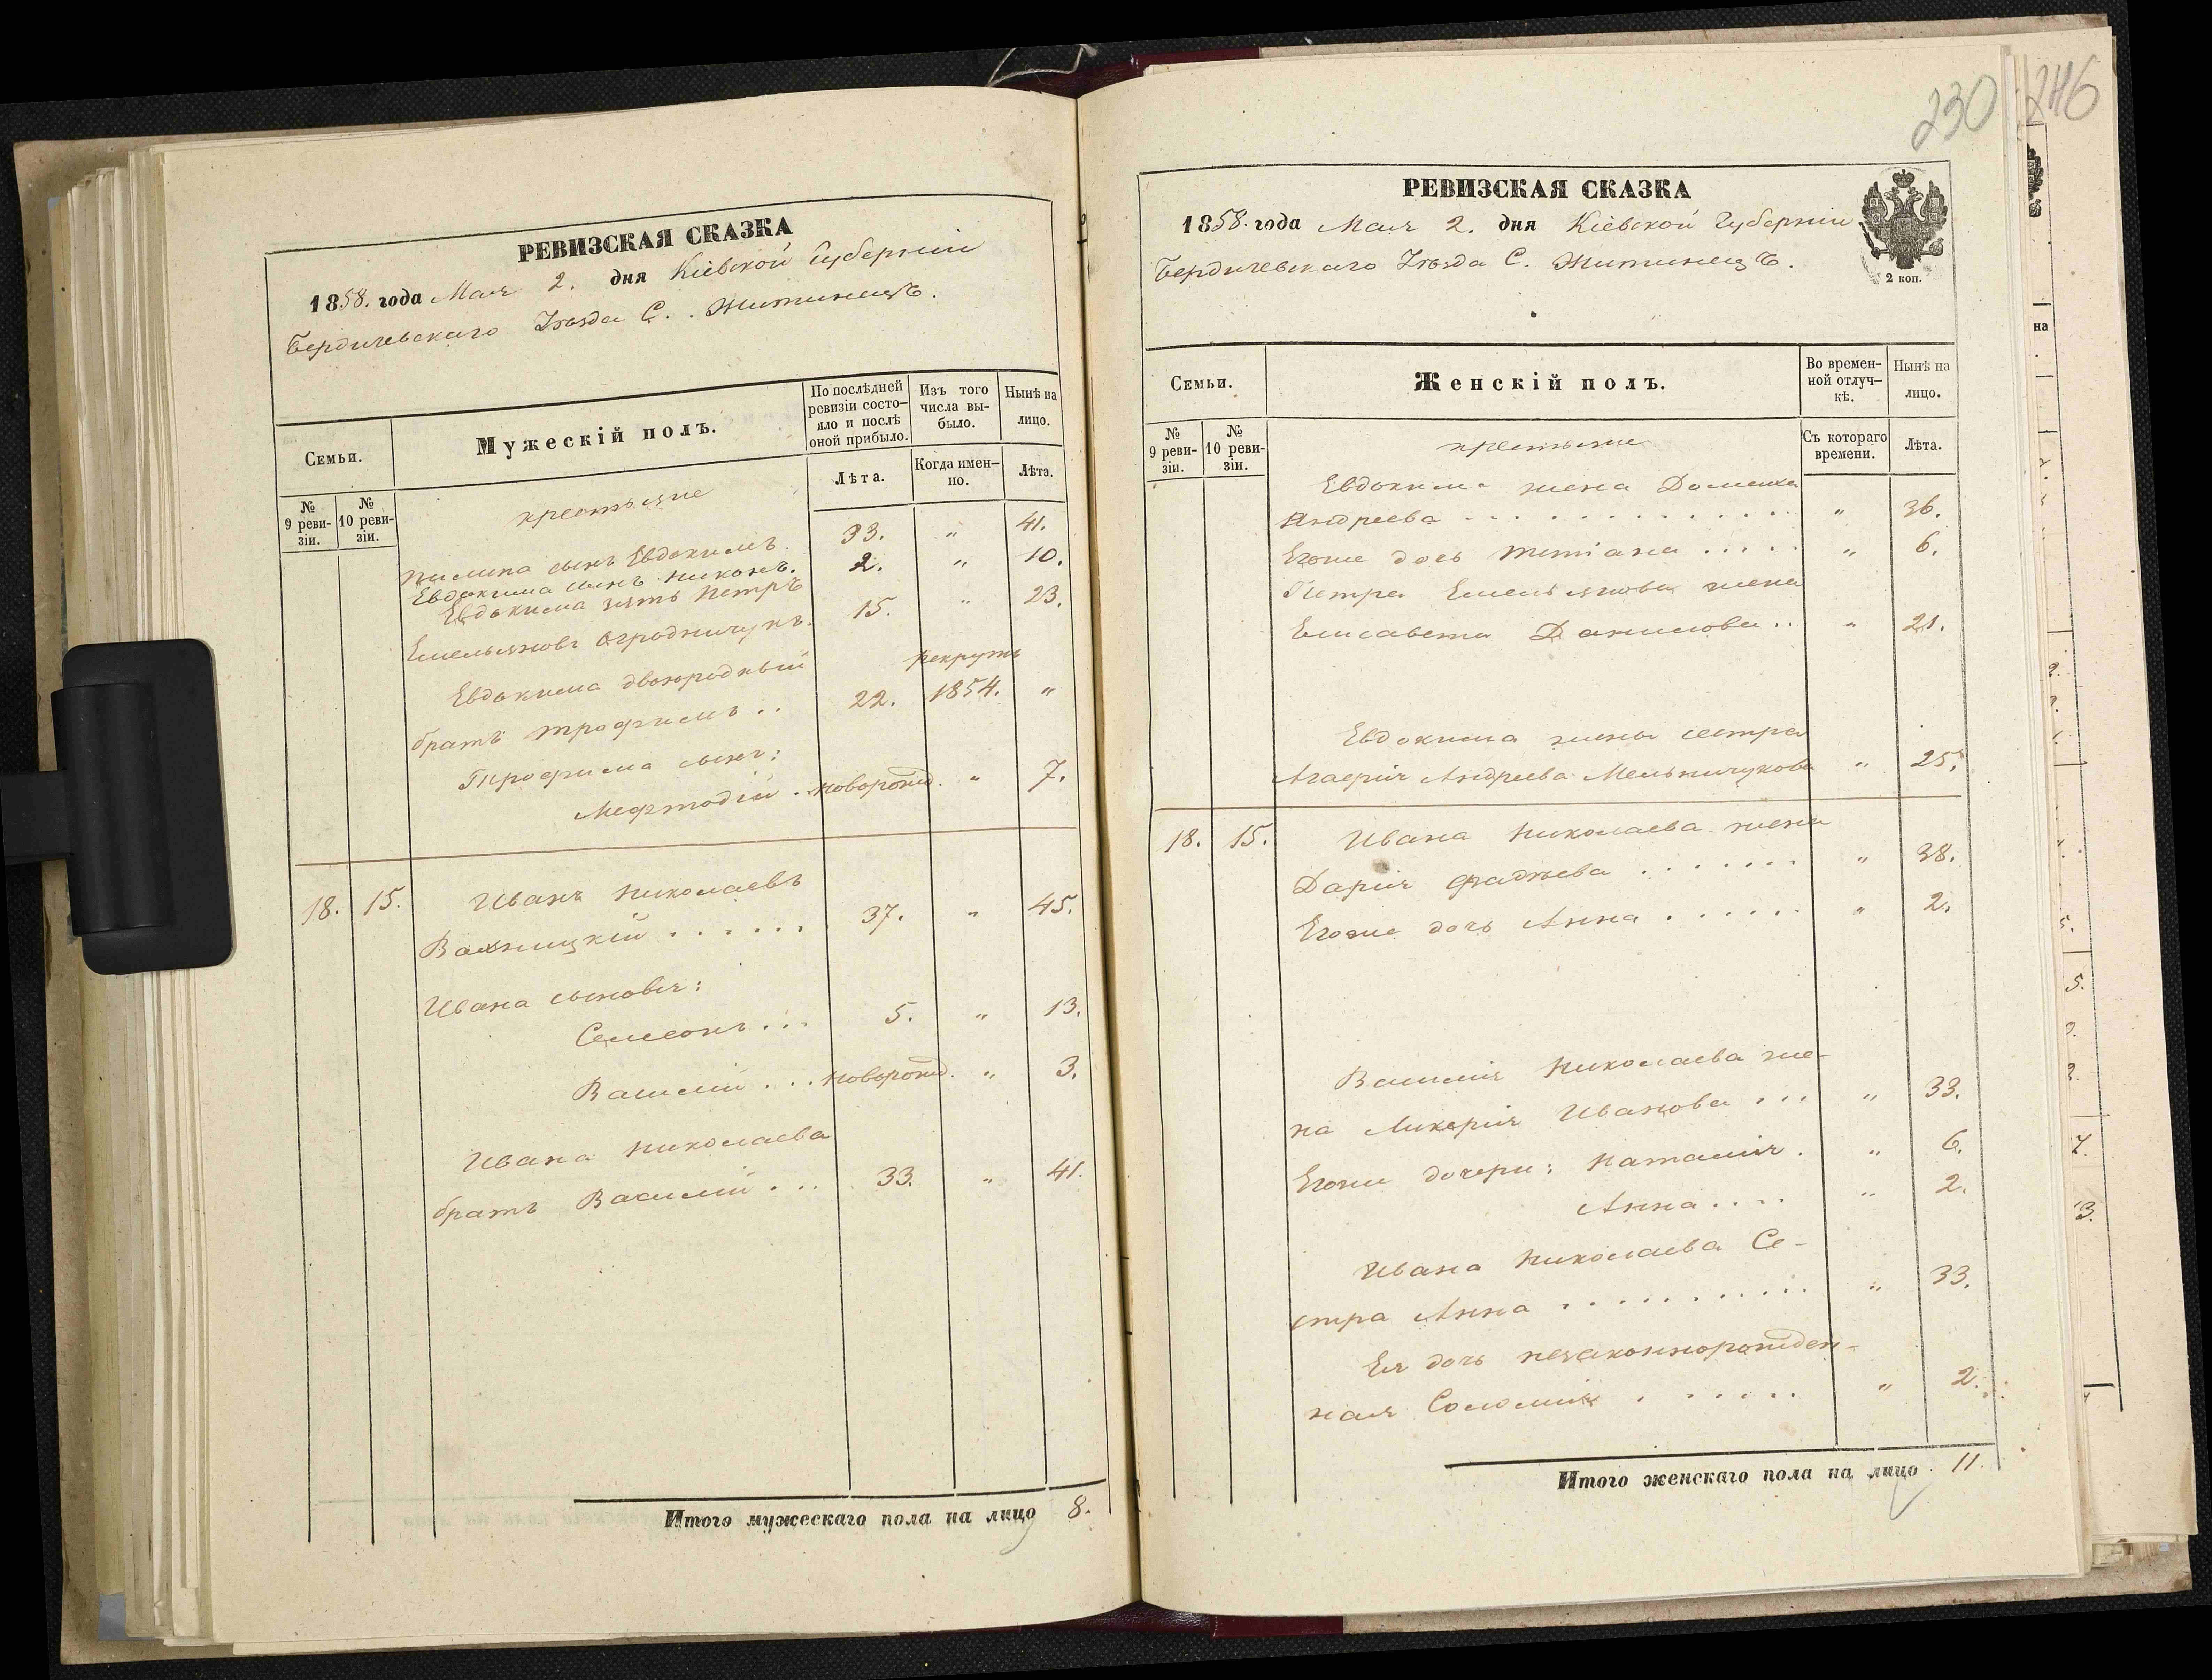 РЕВИЗСКАЯ СКАЗКА
1858. года Мая 2. дня Кіевской Губерніи
Бердичевскаго Уѣзда С. Житинецъ.
Семьи.
Мужескій полъ.
По послѣдней ревизіи состо-
яло и послѣ оной прибыло.
Изъ того числа вы-
было.
Нынѣ на лицо.
№ 9 реви-
зіи.
№ 10 реви-
зіи.
Лѣта.
Когда имен-
но.
Лѣта.
крестьяне
сынъ Евдокимъ. 33. " 41.
Евдокима сынъ Никонъ. 2. " 10.
Евдокима зять Петръ
Емельяновъ Огродничукъ. 15. " 23.
Евдокима двоюродный рекрутъ
братъ Трофимъ .. 22. 1854. "
Трофима сынъ:
Мефтодій . новорожд. " 7.
18. 15. Иванъ Николаевъ
Вахницкій ...... 37. " 45.
Ивана сыновья:
Семеонъ ... 5. " 13.
Василій ... новорожд. " 3.
Ивана Николаева
братъ Василій ... 33. " 41.
Итого мужескаго пола на лицо 8.
230
246
РЕВИЗСКАЯ СКАЗКА
1858. года Мая 2. дня Кіевской Губерніи
Бердичевскаго Уѣзда С. Житинецъ.
2 коп.
Семьи.
Женскій полъ.
Во времен-
ной отлуч-
кѣ.
Нынѣ на лицо.
№ 9 реви-
зіи.
№ 10 реви-
зіи.
Съ котораго времени.
Лѣта.
крестьяне
Евдокима жена Домника
Андреева ............. " 36.
Егоже дочь Титіана ..... " 6.
Петра Емельянова жена
Елисавета Данилова .. " 21.
Евдокима жены сестра
Агафія Андреева Мельничукова " 25.
18. 15. Ивана Николаева жена
Дарія Фадѣева ....... " 38.
Егоже дочь Анна ...... " 2.
Василія Николаева же-
на Ликерія Иванова ... " 33.
Егоже дочери: Наталія . " 6.
Анна .... " 2.
Ивана Николаева Се-
стра Анна ........... " 33.
Ея дочь незаконнорожден-
ная Соломія ...... " 2.
Итого женскаго пола на лицо 11.